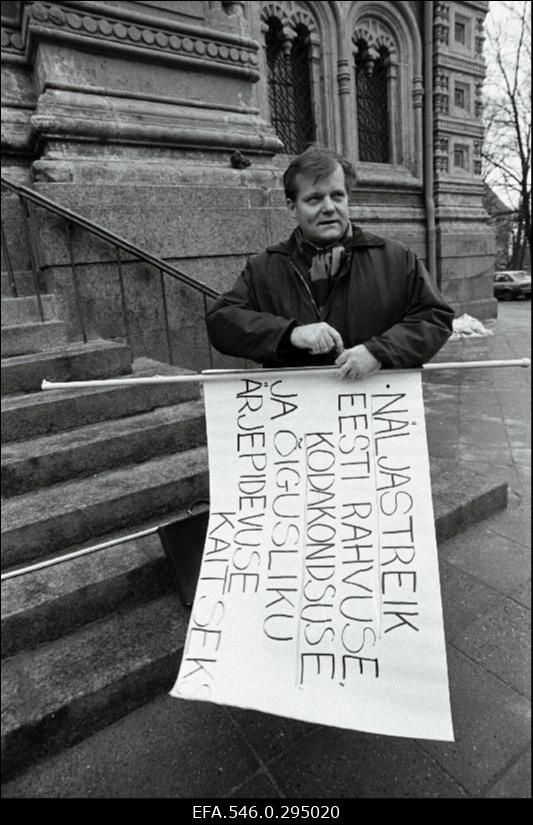 NÄLJASTREIK
EESTI RAHVUSE,
KODAKONDSUSE
JA ÕIGUSLIKU
ÄRJEPIDEVUSE
KAITSEKS
EFA.546.0.295020